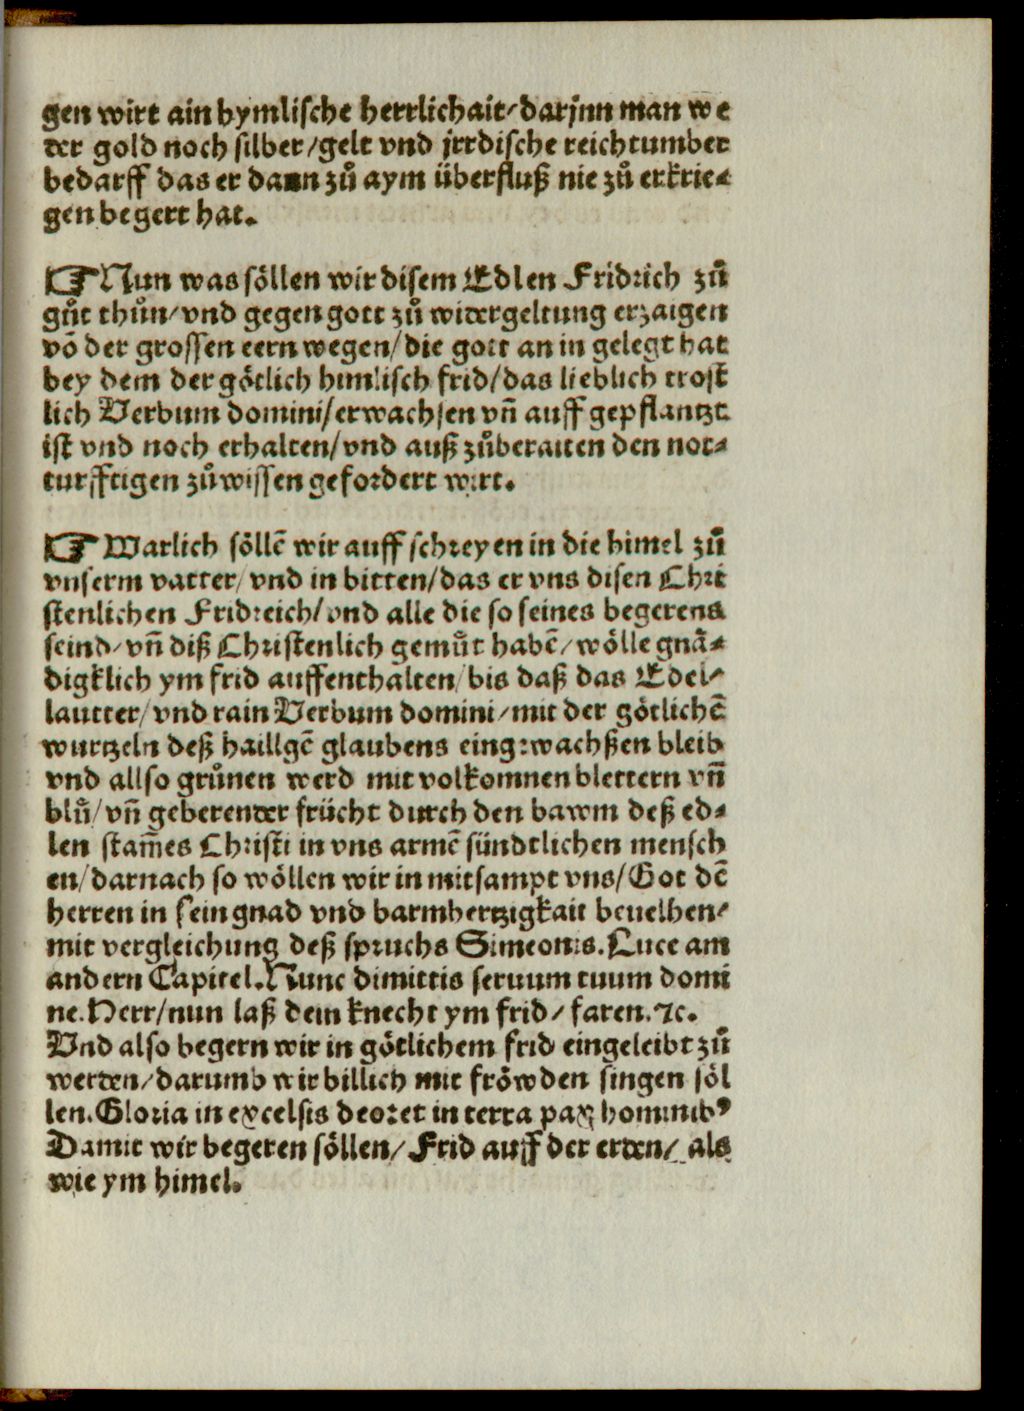 gen wirt ain hymlische herrlichait/darjnn man we
der gold noch silber/gelt vnd jrrdische reichtumber
bedarff das er dann zuͦ aym überfluß nie zuͦ erkrie⸗
gen begert hat.
☞Nun was söllen wir disem Edlen Fridrich zuͦ
guͦt thuͦn/vnd gegen gott zuͦ widergeltung erzaigen
võ der grossen eern wegen/die gott an in gelegt hat
bey dem der götlich himlisch frid/das lieblich trost
lich Verbum domini/erwachsen vn̄ auff gepflantzt
ist vnd noch erhalten/vnd auß zuͦberaiten den not⸗
turfftigen zuͦwissen gefordert wirt.
☞Warlich söllē wir auff schreyen in die himel zuͦ
vnserm vatter/vnd in bitten/das er vns disen Chri
stenlichen Fridreich/vnd alle die so seines begerens
seind/vn̄ diß Christenlich gemuͤt habē/wölle gnä⸗
digklich ym frid auffenthalten/bis daß das Edel/
lautter/vnd rain Verbum domini/mit der götlichē
wurtzeln deß haillgē glaubens eingewachßen bleib
vnd allso gruͤnen werd mit volkomnen blettern vn̄
bluͤ/vn̄ geberender frücht durch den bawm deß ed⸗
len stam̄es Christi in vns armē sündtlichen mensch
en/darnach so wöllen wir in mitsampt vns/Got dē
herren in sein gnad vnd barmhertzigkait beuelhen/
mit vergleichung deß spruchs Simeonis.Luce am
andern Capitel.Nunc dimittis seruum tuum domi
ne.Herr/nun laß dein knecht ym frid/faren.⁊c.
Vnd also begern wir in götlichem frid eingeleibt zuͦ
werden/darumb wir billich mit fröwden singen söl
len.Gloria in excelsis deo⁊et in terra pax hominibꝰ
Damit wir begeren söllen/Frid auff der erden/als
wie ym himel.